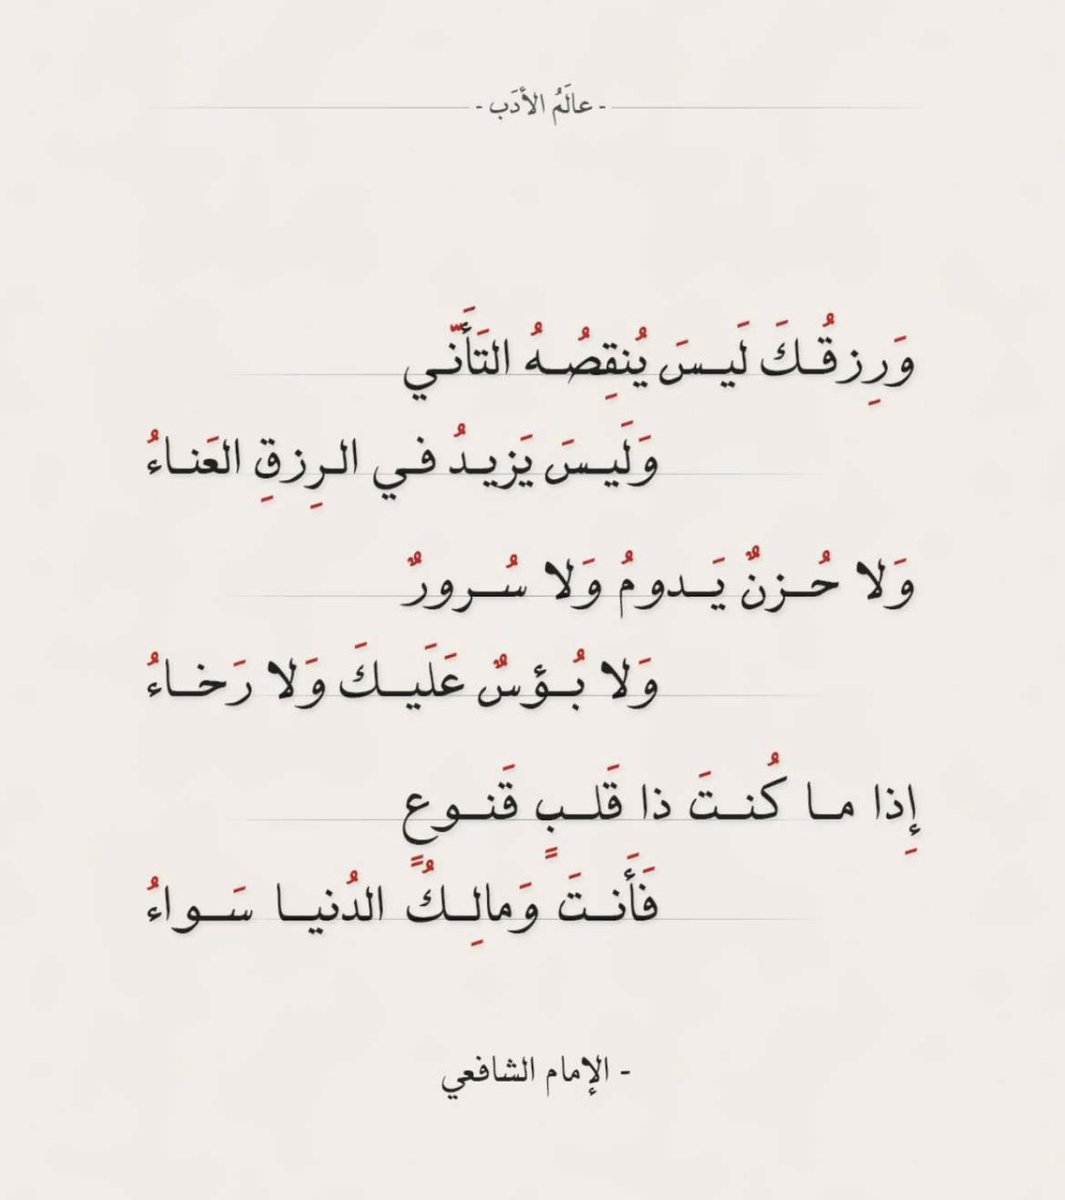 - عالَمُ الأدَب -
وَرِزقُكَ لَيسَ يُنقِصُهُ التَأَنّي
وَلَيسَ يَزيدُ في الرِزقِ العَناءُ
وَلا حُزنٌ يَدومُ وَلا سُرورٌ
وَلا بُؤسٌ عَلَيكَ وَلا رَخاءُ
إِذا ما كُنتَ ذا قَلبٍ قَنوعٍ
فَأَنتَ وَمالِكُ الدُنيا سَواءُ
- الإمام الشافعي